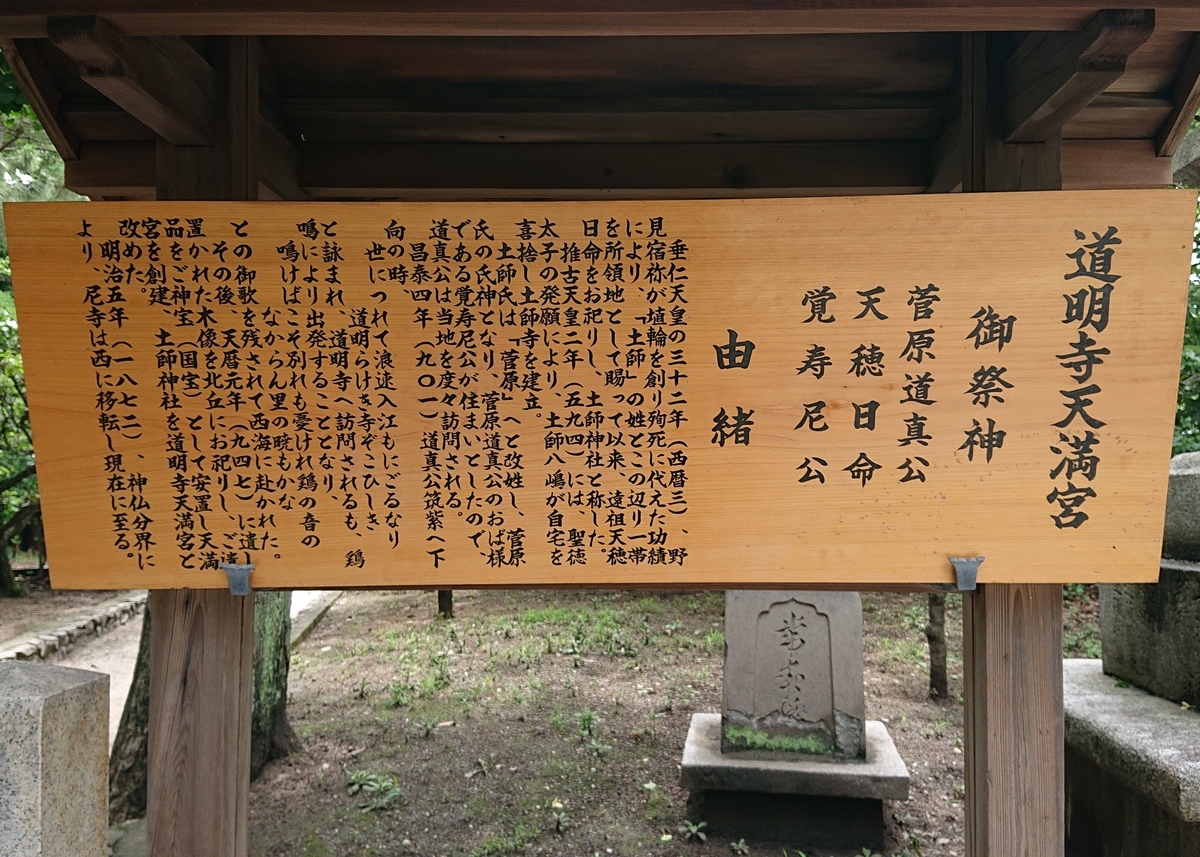 道明寺天満宮
御祭神
菅原道真公
天穂日命
覚寿尼公
由緒
垂仁天皇の三十二年（西暦三）、野
見宿祢が埴輪を創り殉死に代えた功績
により、「土師」の姓とこの辺り一帯
を所領地として賜って以来、遠祖天穂
日命をお祀りし、土師神社と称した。
推古天皇二年（五九四）には、聖徳
太子の発願により、土師八嶋が自宅を
喜捨し土師寺を建立。
土師氏は「菅原」へと改姓し、菅原
氏の氏神となり、菅原道真公のおば様
である覚寿尼公が住まいとしたので、
道真公は当地を度々訪問される。
昌泰四年（九〇一）道真公筑紫へ下
向の時、
世につれて浪速入江もにごるなり
道明らけき寺ぞこひしき
と詠まれ、道明寺へ訪問されるも、鶏
鳴により出発することとなり、
鳴けばこそ別れも憂けれ鶏の音の
なからん里の暁もかな
との御歌を残されて西海に赴かれた。
その後、天暦元年（九四七）に遺し
置かれた木像を北丘にお祀りし、ご遺
品をご神宝（国宝）として安置し天満
宮を創建、土師神社を道明寺天満宮と
改めた。
明治五年（一八七二）、神仏分界に
より、尼寺は西に移転し現在に至る。